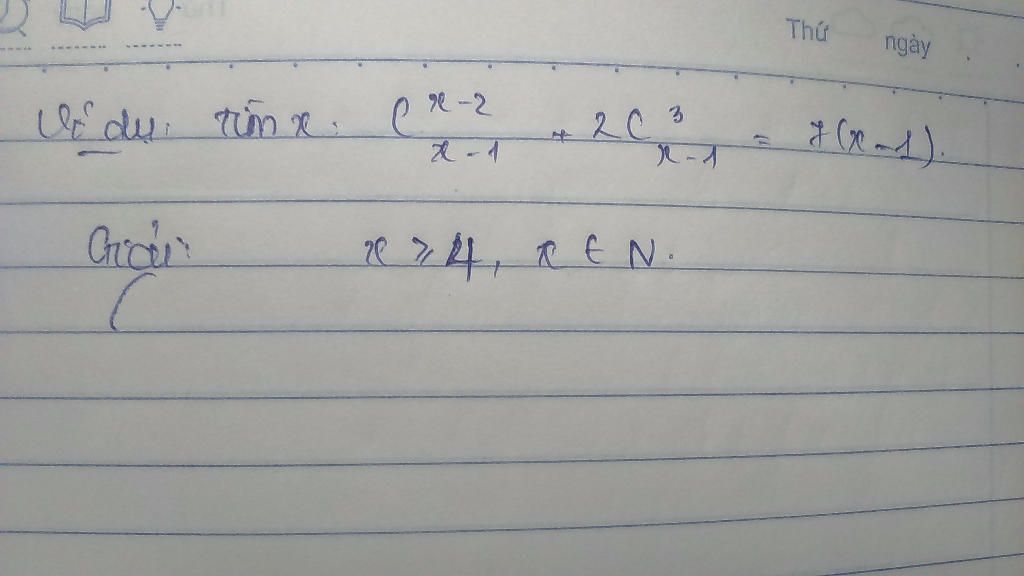 Thứ ngày
Ví dụ: Tìm x: C^{x-2}_{x-1} + 2C^{3}_{x-1} = 7(x-1).
Giải: x ⩾ 4, x ∈ N.